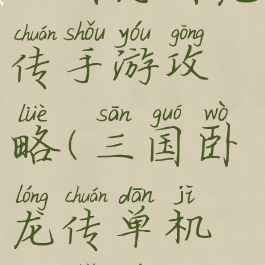 chuán shǒu yóu gōng
传手游攻
lüè sān guó wò
略(三国卧
lóng chuán dān jī
龙传单机